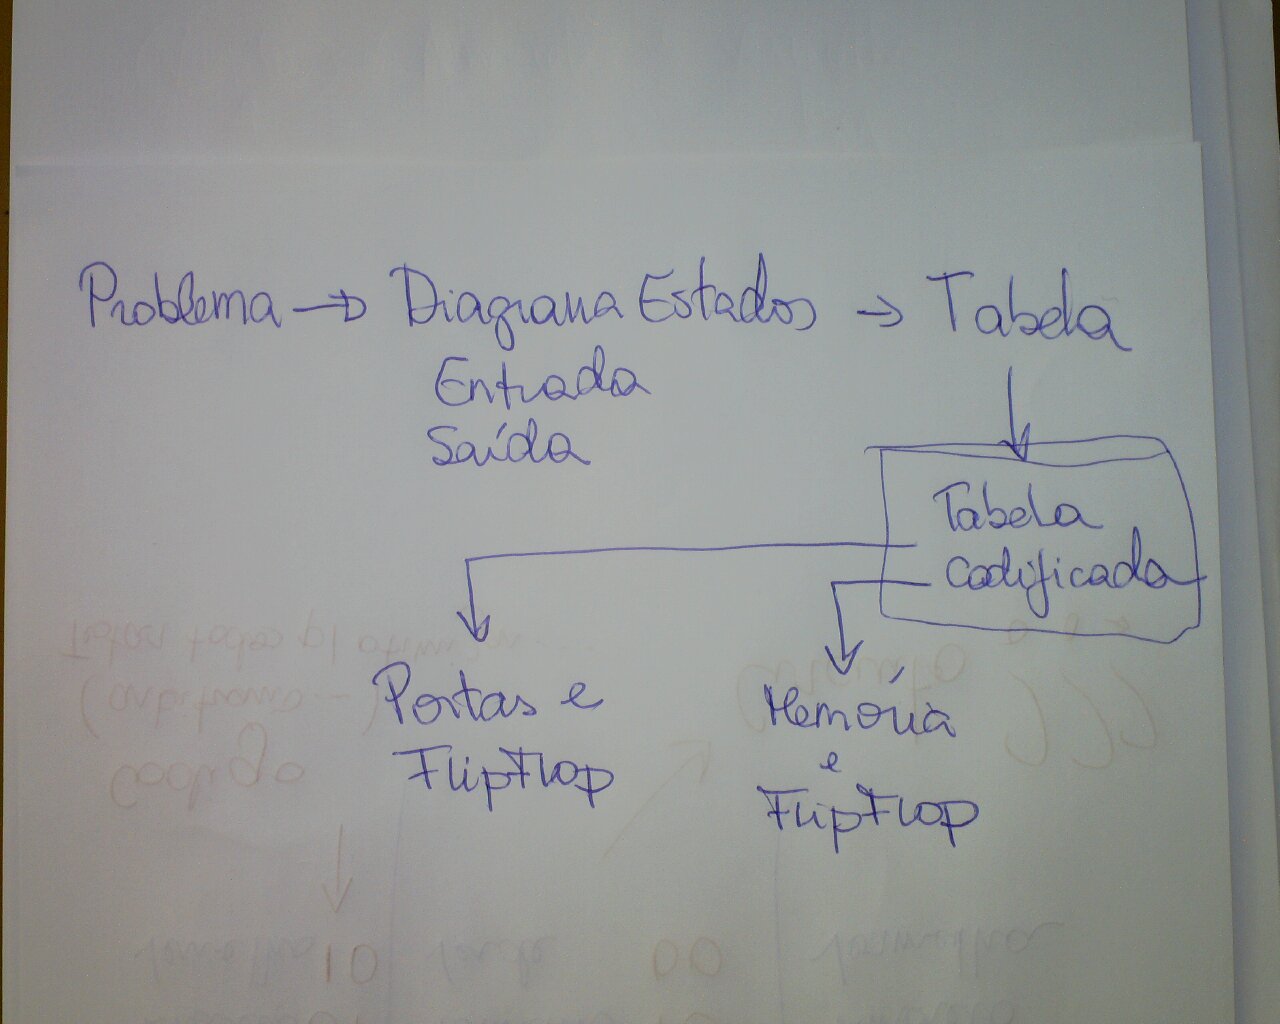 Problema → Diagrama Estados → Tabela
Entrada
Saída
Tabela
Codificada
Portas e
FlipFlop
Memória
e
FlipFlop